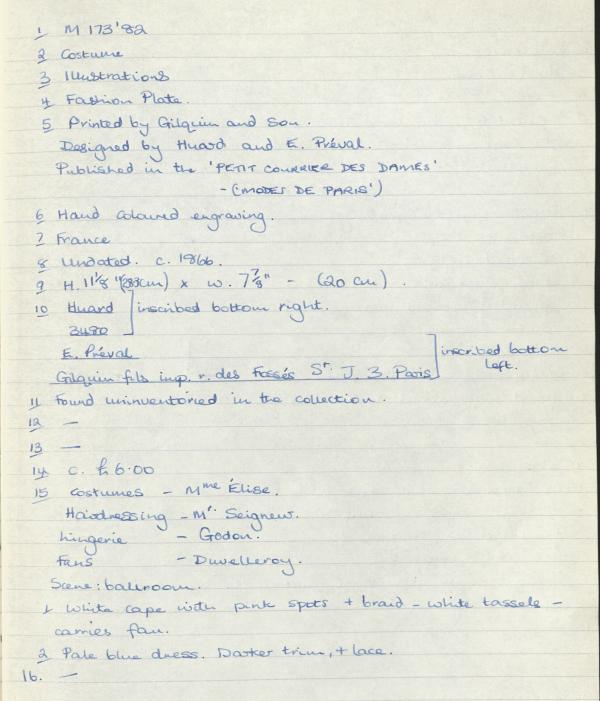 1 M 173'82
2 Costume
3 Illustrations
4 Fashion Plate.
5 Printed by Gilquin and Son.
Designed by Huard and E. Préval.
Published in the 'PETIT COURRIER DES DAMES'
- (MODES DE PARIS')
6 Hand coloured engraving.
7 France
8 Undated. c. 1866.
9 H. 11 1/8" (28.3cm) x w. 7 7/8" - (20 cm).
10 Huard ] inscribed bottom right.
3480
E. Préval ] inscribed bottom left.
Gilquin fils imp. r. des Fossés St. J. 3. Paris
11 Found uninventoried in the collection.
12 —
13 —
14 c. £6.00
15 Costumes - Mme Élise.
Hairdressing - Mr. Seigneur.
Lingerie - Godon.
Fans - Duvelleroy.
Scene: ballroom.
1 White cape with pink spots + braid - white tassels -
carries fan.
2 Pale blue dress. Darker trim, + lace.
16. —